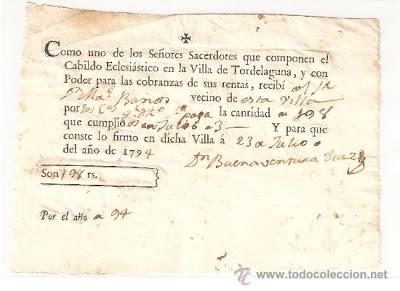 ✠
Como uno de los Señores Sacerdotes que componen el
Cabildo Eclesiástico en la Villa de Tordelaguna, y con
Poder para las cobranzas de sus rentas, recibí
vecino de esta villa
por paga la cantidad a 198
que cumplió Julio Y para que
conste lo firmo en dicha Villa á 23 de Julio
del año de 1794
Dn Buenaventura
Son 198 rs.
Por el año a 94
todocoleccion.net